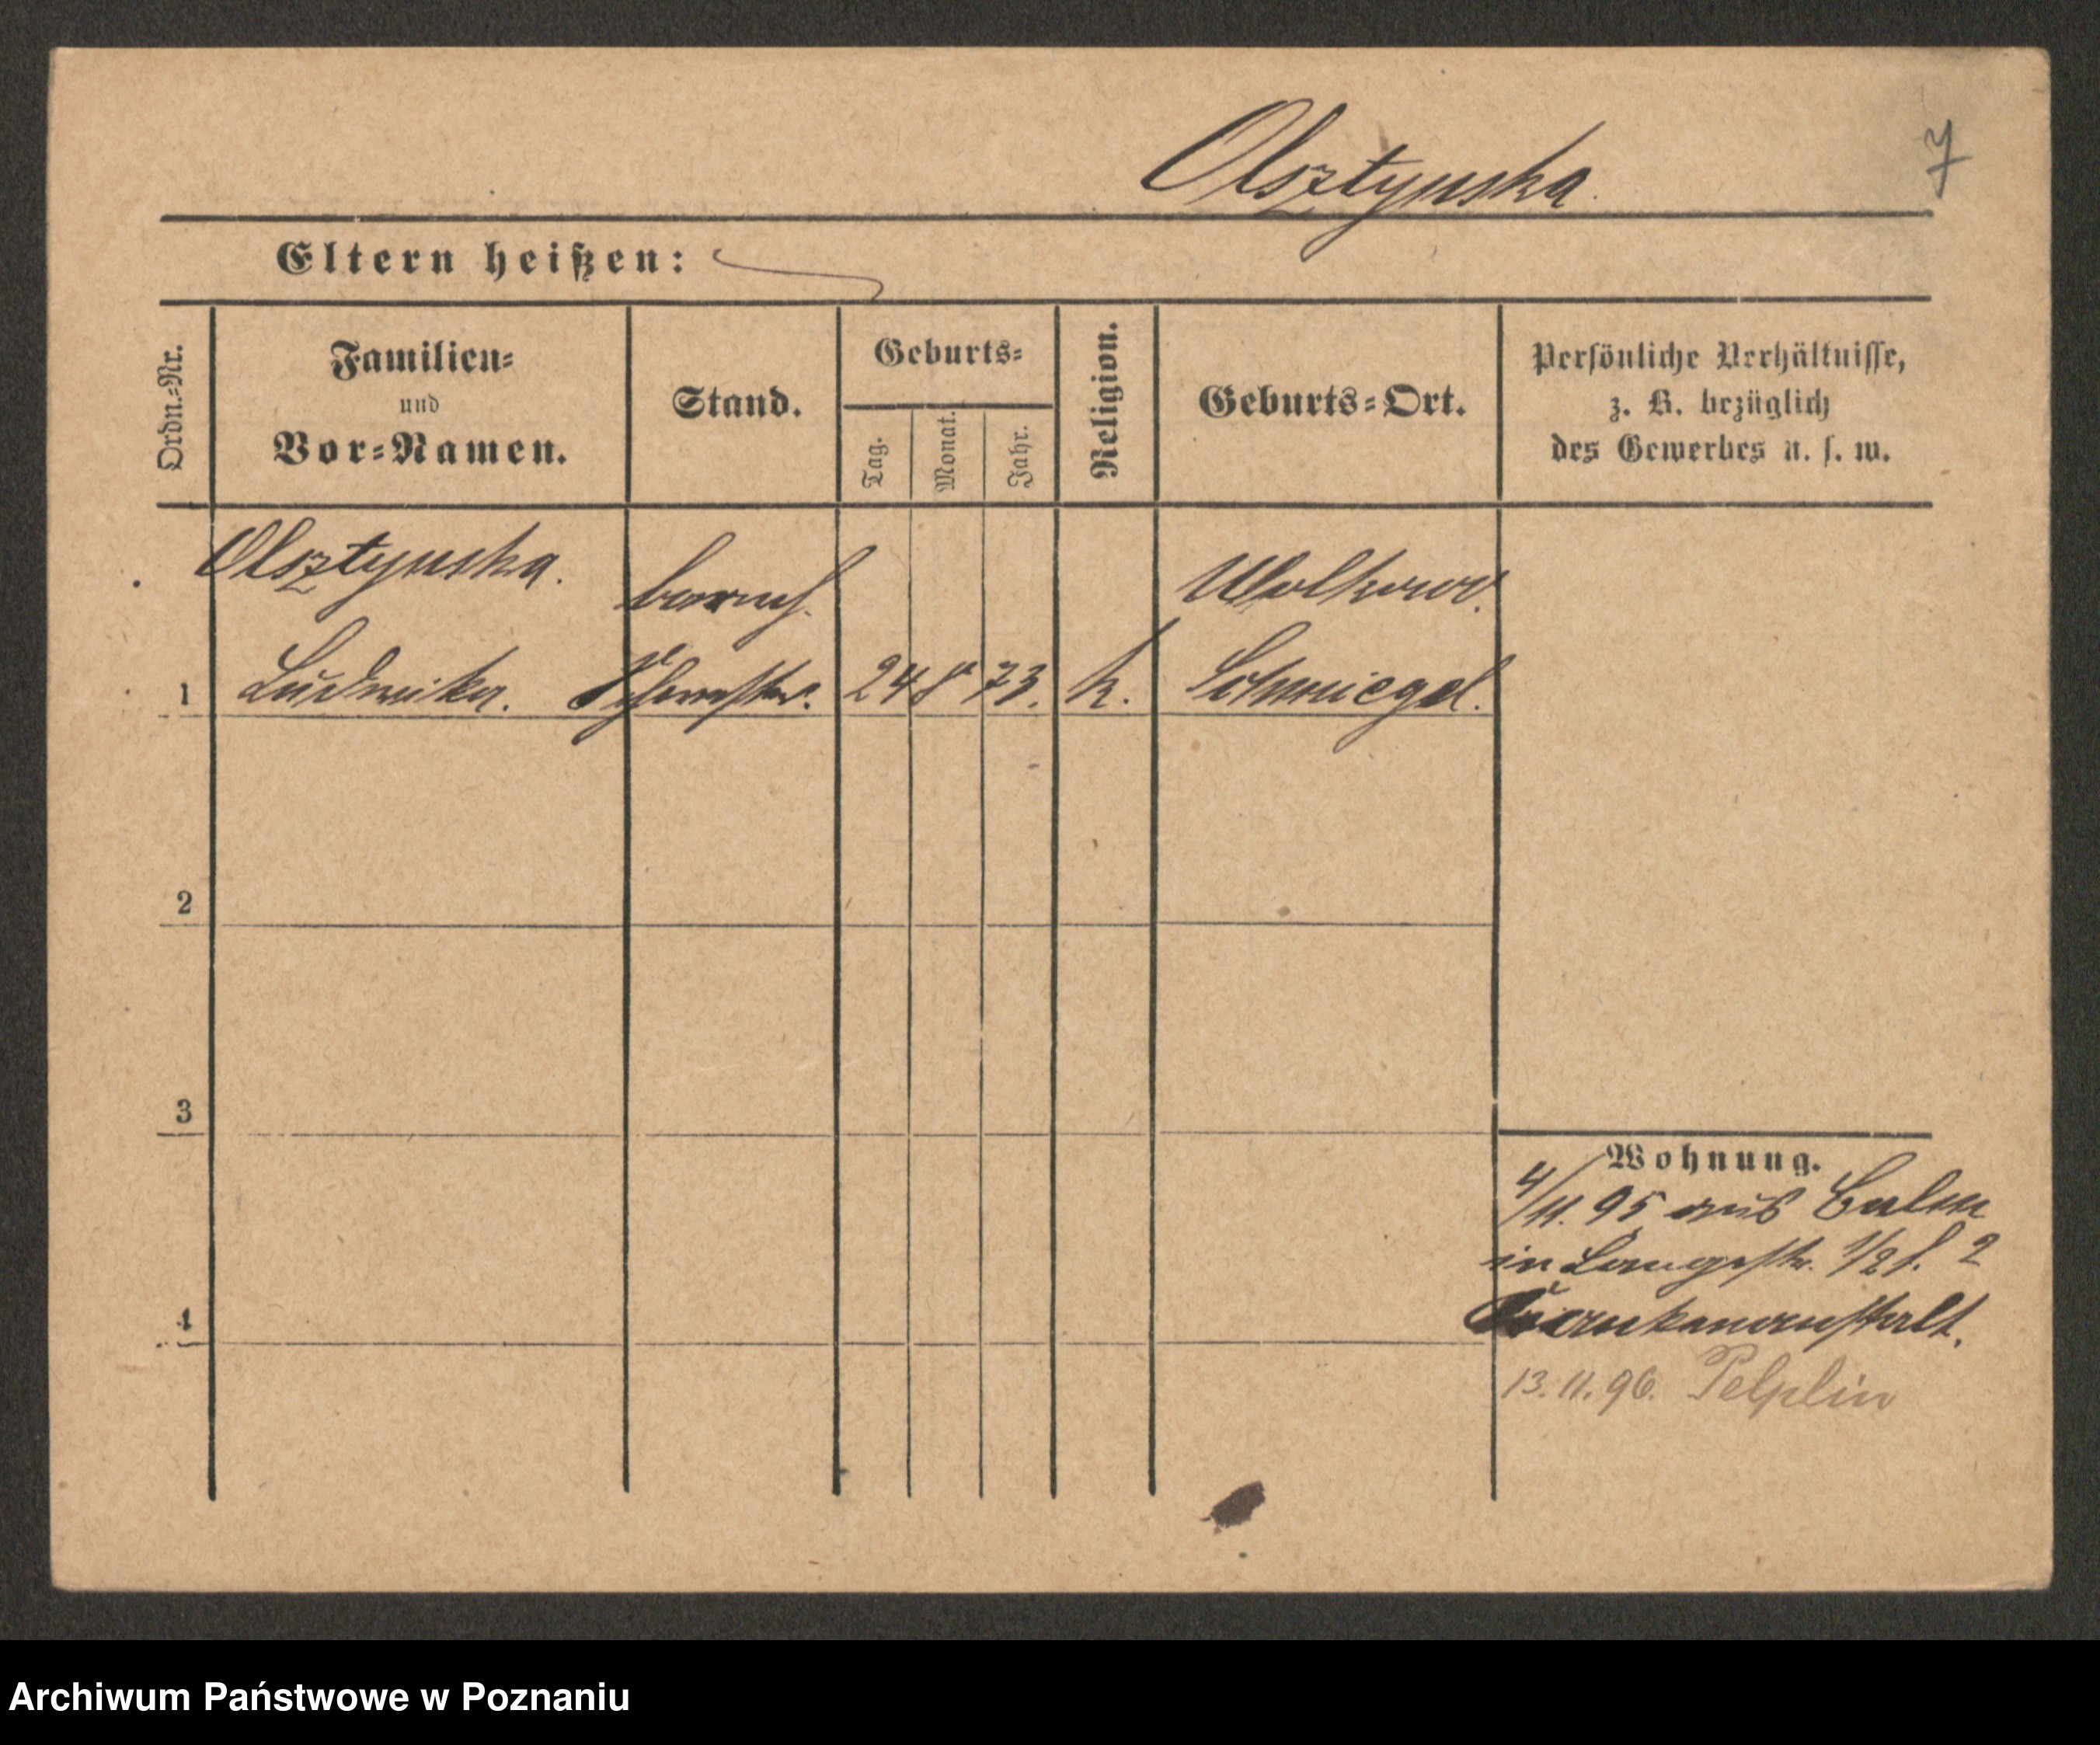 Olsztynska.
7
Eltern heißen:
Ordn.-Nr.
Familien-
und
Vor-Namen.
Stand.
Geburts-
Tag.
Monat.
Jahr.
Religion.
Geburts-Ort.
Persönliche Verhältnisse,
z. B. bezüglich
des Gewerbes u. s. w.
Olsztynska.
barmh.
Wolkowo.
1 Ludwika. Schwester. 24 8 73. k. Schmiegel.
2
3
4
Wohnung.
4/11. 95 aus Culm
in Langestr. 1/2 f. 2
Krankenanstalt.
13. 11. 96. Pelplin
Archiwum Państwowe w Poznaniu